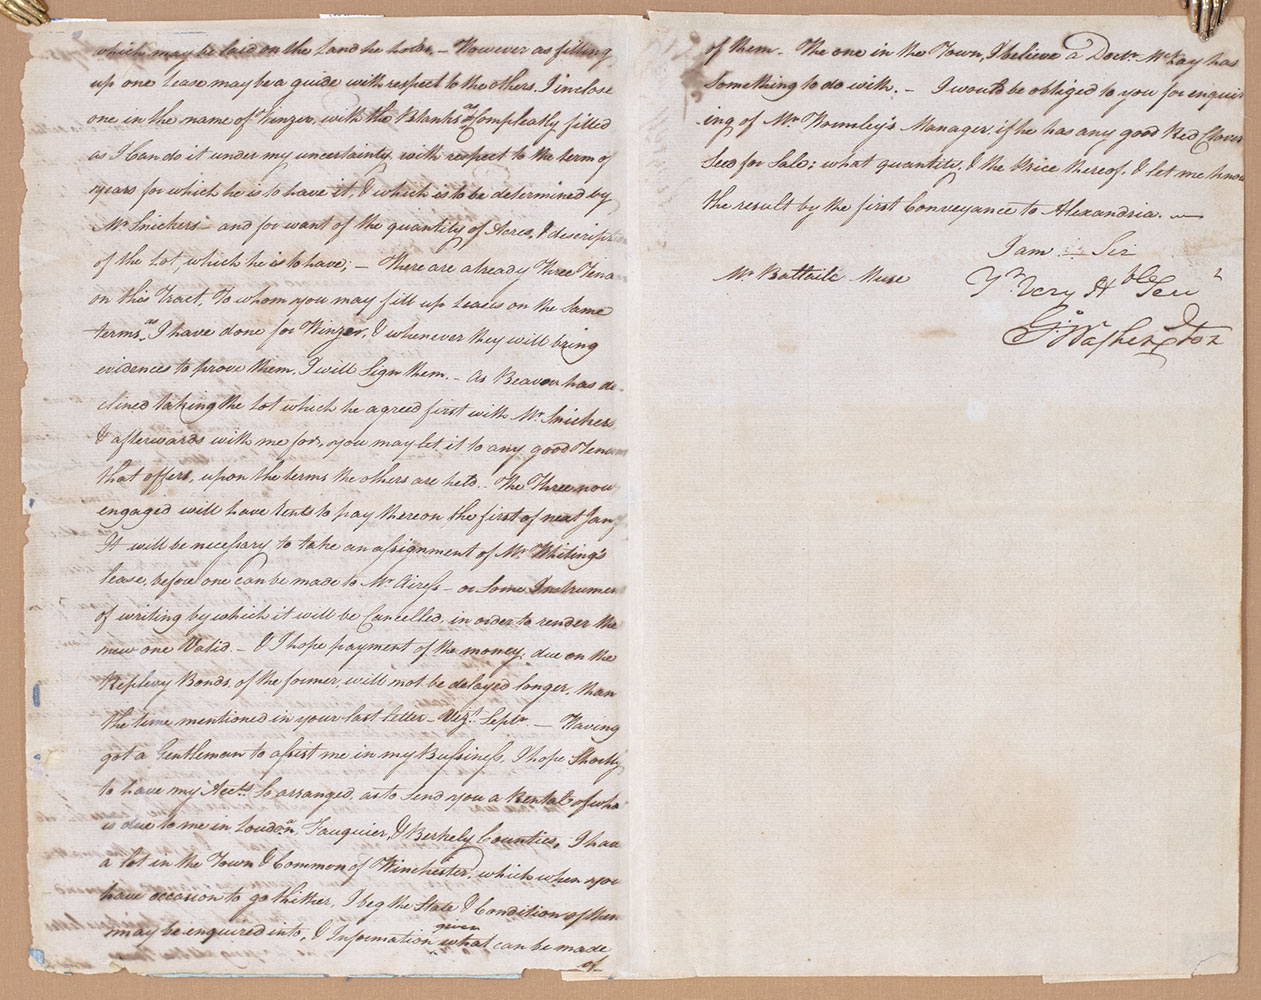 which may be laid on the Land he holds — However as filling
up one Lease may be a guide with respect to the others, I inclose
one in the name of Winzer, with the Blanks as Compleatly filled
as I can do it under my uncertainty with respect to the term of
years for which he is to have it, & which is to be determined by
Mr Snickers — and for want of the quantity of Acres, & descript
of the Lot, which he is to have; — There are already Three Tena
on this Tract, to whom you may fill up Leases on the same
terms, as I have done for Winzer, & whenever they will bring
evidences to prove them, I will Sign them. — As Beavou has de-
clined taking the Lot which he agreed first with Mr Snickers
& afterwards with me for, you may let it to any good Tenan
that offers, upon the terms the others are held. — The Three now
engaged will have rents to pay thereon the first of next Jany
It will be necessary to take an assignment of Mr Whiting's
lease, before one can be made to Mr Airess — or some Instrumen
of writing by which it will be Cancelled, in order to render the
new one Valid. — & I hope payment of the money, due on the
Replevy Bonds, of the former, will not be delayed longer, than
the time mentioned in your last letter — Vizt Septr — Having
got a Gentleman to assist me in my Bussiness, I hope Shortly
to have my Accts so arranged, as to send you a Rental of wha
is due to me in Loudon, Fauquier, & Berkely Counties. I hav
a lot in the Town & Common of Winchester, which when you
have occasion to go thither, I beg the State & Condition of them
may be enquired into, & Information given what can be made
of
of them. The one in the Town, I believe a Doctr McKay has
Something to do with. — I would be obliged to you for enquir
ing of Mr Wormley's Manager, if he has any good Red Clover
Seed for Sale; what quantity, & the Price thereof, & let me know
the result by the first Conveyance to Alexandria. —
I am Sir
Mr Battaile Muse Yr Very Hble Servt
Go Washington